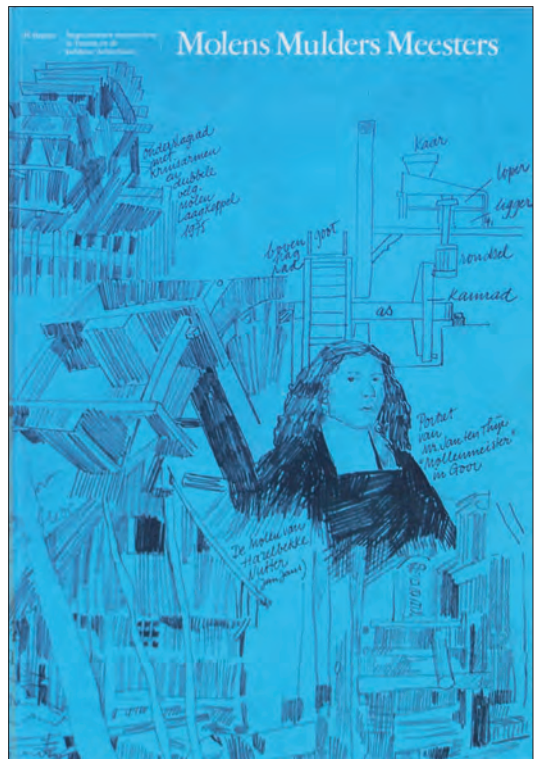 Molens Mulders Meesters
in Twente en de
onderslagrad
met
kruisarmen
en
dubbele
velg
molen
Laagkeppel
1975
Kaar
loper
ligger
rondsel
kamrad
as
boven
slag
rad
goot
Portret
van
Mr. Jan ten Thije
"Mollenmeister"
in Goor
De Molen van
Hazelbekke
Nutter